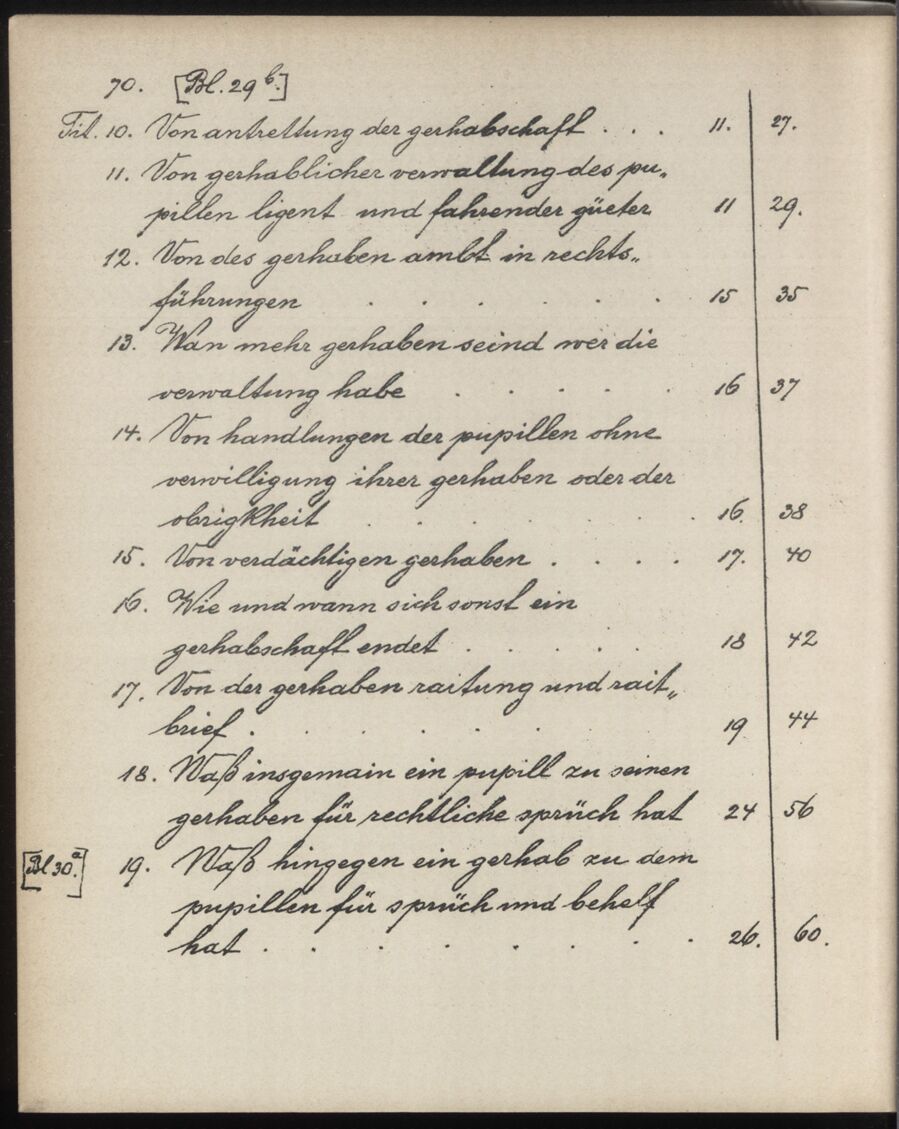 70. [Bl. 29 b.]
Tit. 10. Von antrettung der gerhabschaft . . . 11. 27.
11. Von gerhablicher verwaltung des pu„
pillen ligent und fahrender güeter 11 29.
12. Von des gerhaben ambt in rechts„
führungen . . . . . . 15 35
13. Wan mehr gerhaben seind wer die
verwaltung habe . . . . . 16 37
14. Von handlungen der pupillen ohne
verwilligung ihrer gerhaben oder der
obrigkheit . . . . . . 16. 38
15. Von verdächtigen gerhaben . . . . 17. 40
16. Wie und wann sich sonst ein
gerhabschaft endet . . . . . 18 42
17. Von der gerhaben raitung und rait„
brief . . . . . . 19 44
18. Waß insgemain ein pupill zu seinen
gerhaben für rechtliche sprüch hat 24 56
[Bl 30. a] 19. Waß hingegen ein gerhab zu dem
pupillen für sprüch und behelf
hat . . . . . . . . 26. 60.